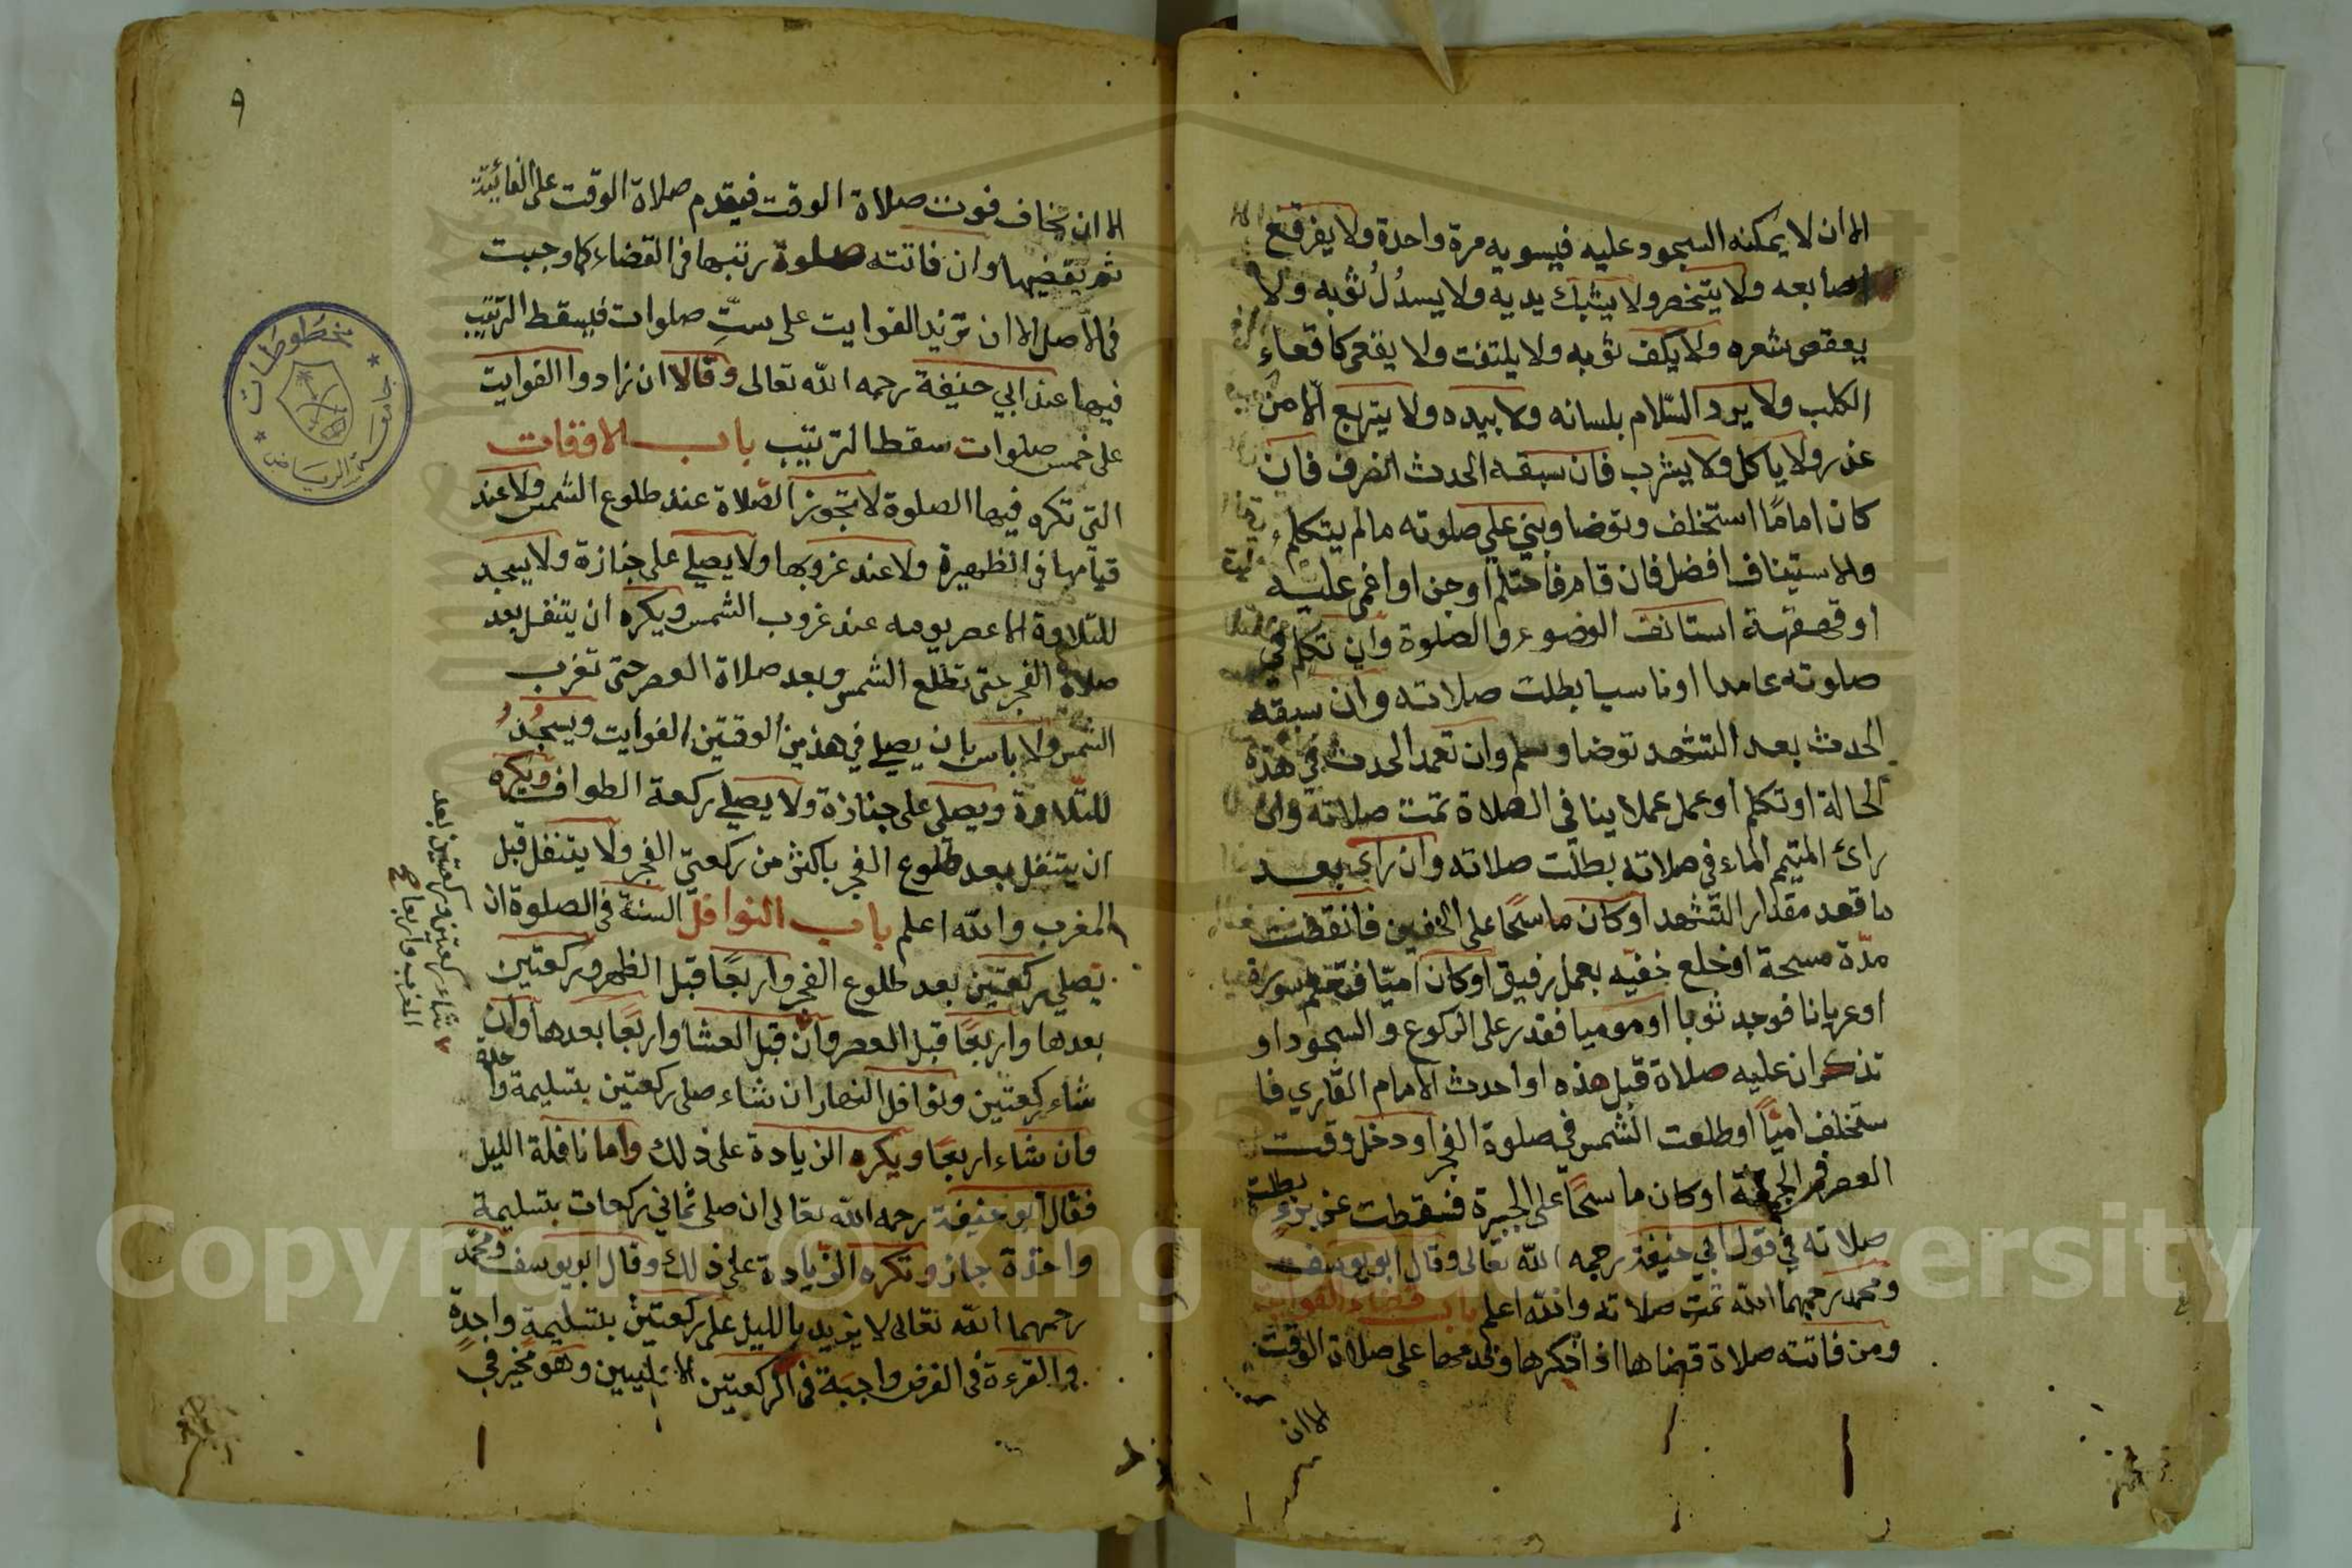 الا ان لا يمكنه السجود عليه فيسويه مرة واحدة ولا يفرقع
اصابعه ولا يتخصر ولا يشبك يديه ولا يسدُلُ ثوبه ولا
يعقص شعره ولا يكف ثوبه ولا يلتفت ولا يقعى كاقعاء
الكلب ولا يرد السّلام بلسانه ولا بيده ولا يتربع الّا من
عذر ولا ياكل ولا يشرب فان سبقه الحدث انصرف فان
كان امامًا استخلف وتوضا وبني علي صلوته مالم يتكلم
والاستيناف افضل فان قام فاحتلم أوجن او اغمى عليه
او قهقهة استانف الوضوء والصلوة وان تكلم في
صلوته عامدا اوناسيا بطلت صلاته وان سبقه
الحدث بعد التشهد توضا وسلم وان تعمد الحدث في هذه
الحالة او تكلم أو عمل عملا ينافي الصلاة تمت صلاته وان
رائ المتيم الماء في صلاته بطلت صلاته وان راى بعد
ما قعد مقدار التشهد اوكان ماسحًا على الخفين فانقطت
مدّة مسحة اوخلع خفيه بعمل رفيق اوكان اميّا فتعلم سورة
اوعريانا فوجد ثوبا اوموميا فقدر على الركوع والسجود او
تذكر ان عليه صلاة قبل هذه او احدث الامام القاري فا
ستخلف اميّاً اوطلعت الشمس في صلوة الفجر اودخل وقت
العصر في الجمعة اوكان ماسحًا على الجبيرة فسقطت عن برءٍ بطلت
صلاته في قول ابي حنيفة رحمه الله تعالى وقال ابو يوسف
ومحمد رحمهما الله تمت صلاته والله اعلم باب قضاء الفوايت
ومن فاتته صلاة قضاها اذا ذكرها وقدمها على صلاة الوقت
الا ان
٩
الا ان يخاف فوت صلاة الوقت فيقدم صلاة الوقت على الفائتة
ثم يقضيها وان فاتته صلوة رتبها في القضاء كما وجبت
في الاصل الا ان تزيد الفوايت على ستّ صلوات فيسقط الترتيب
فيها عند ابي حنيفة رحمه الله تعالى وقالا ان زادوا الفوايت
على خمس صلوات سقط الترتيب باب الاوقات
التى تكره فيها الصلوة لا تجوز الصّلاة عند طلوع الشمس ولا عند
قيامها في الظهيرة ولا عند غروبها ولا يصلي على جنازة ولا يسجد
للتّلاوة الا عصر يومه عند غروب الشمس ويكره ان يتنفل بعد
صلاة الفجر حتى تطلع الشمس وبعد صلاة العصر حتى تغرب
الشمس ولا باس بان يصلي في هذين الوقتين الفوايت ويسجُدُ
للتّلاوة ويصلى على جنازة ولا يصلي ركعة الطواف ويكره
ان يتنفل بعد طلوع الفجر باكثر من ركعتي الفجر ولا يتنفل قبل
المغرب والله اعلم باب النوافل السنة في الصلوة ان
يصلي ركعتين بعد طلوع الفجر واربعًا قبل الظهر وركعتين
بعدها واربعًا قبل العصر وان قبل العشا واربعًا بعدها وان
شاء ركعتين ونوافل النهار ان شاء صلى ركعتين بتسليمة واحدة
وان شاء اربعًا ويكره الزيادة على ذلك واما نافلة الليل
فقال ابو حنيفة رحمه الله تعالى ان صلى ثماني ركعات بتسليمة
واحدة جاز وتكره الزّيادة على ذلك وقال ابويوسف ومحمّد
رحمهما الله تعالى لا يزيد بالليل على ركعتين بتسليمة واحدةٍ
والقرءة في الفرض واجبَة في الركعتين الاوليين وهو مخير في
شاء ركعتين وركعتين بعد
المغرب واربعا
مخطوطات
جامعة الرياض
Copyright © King Saud University